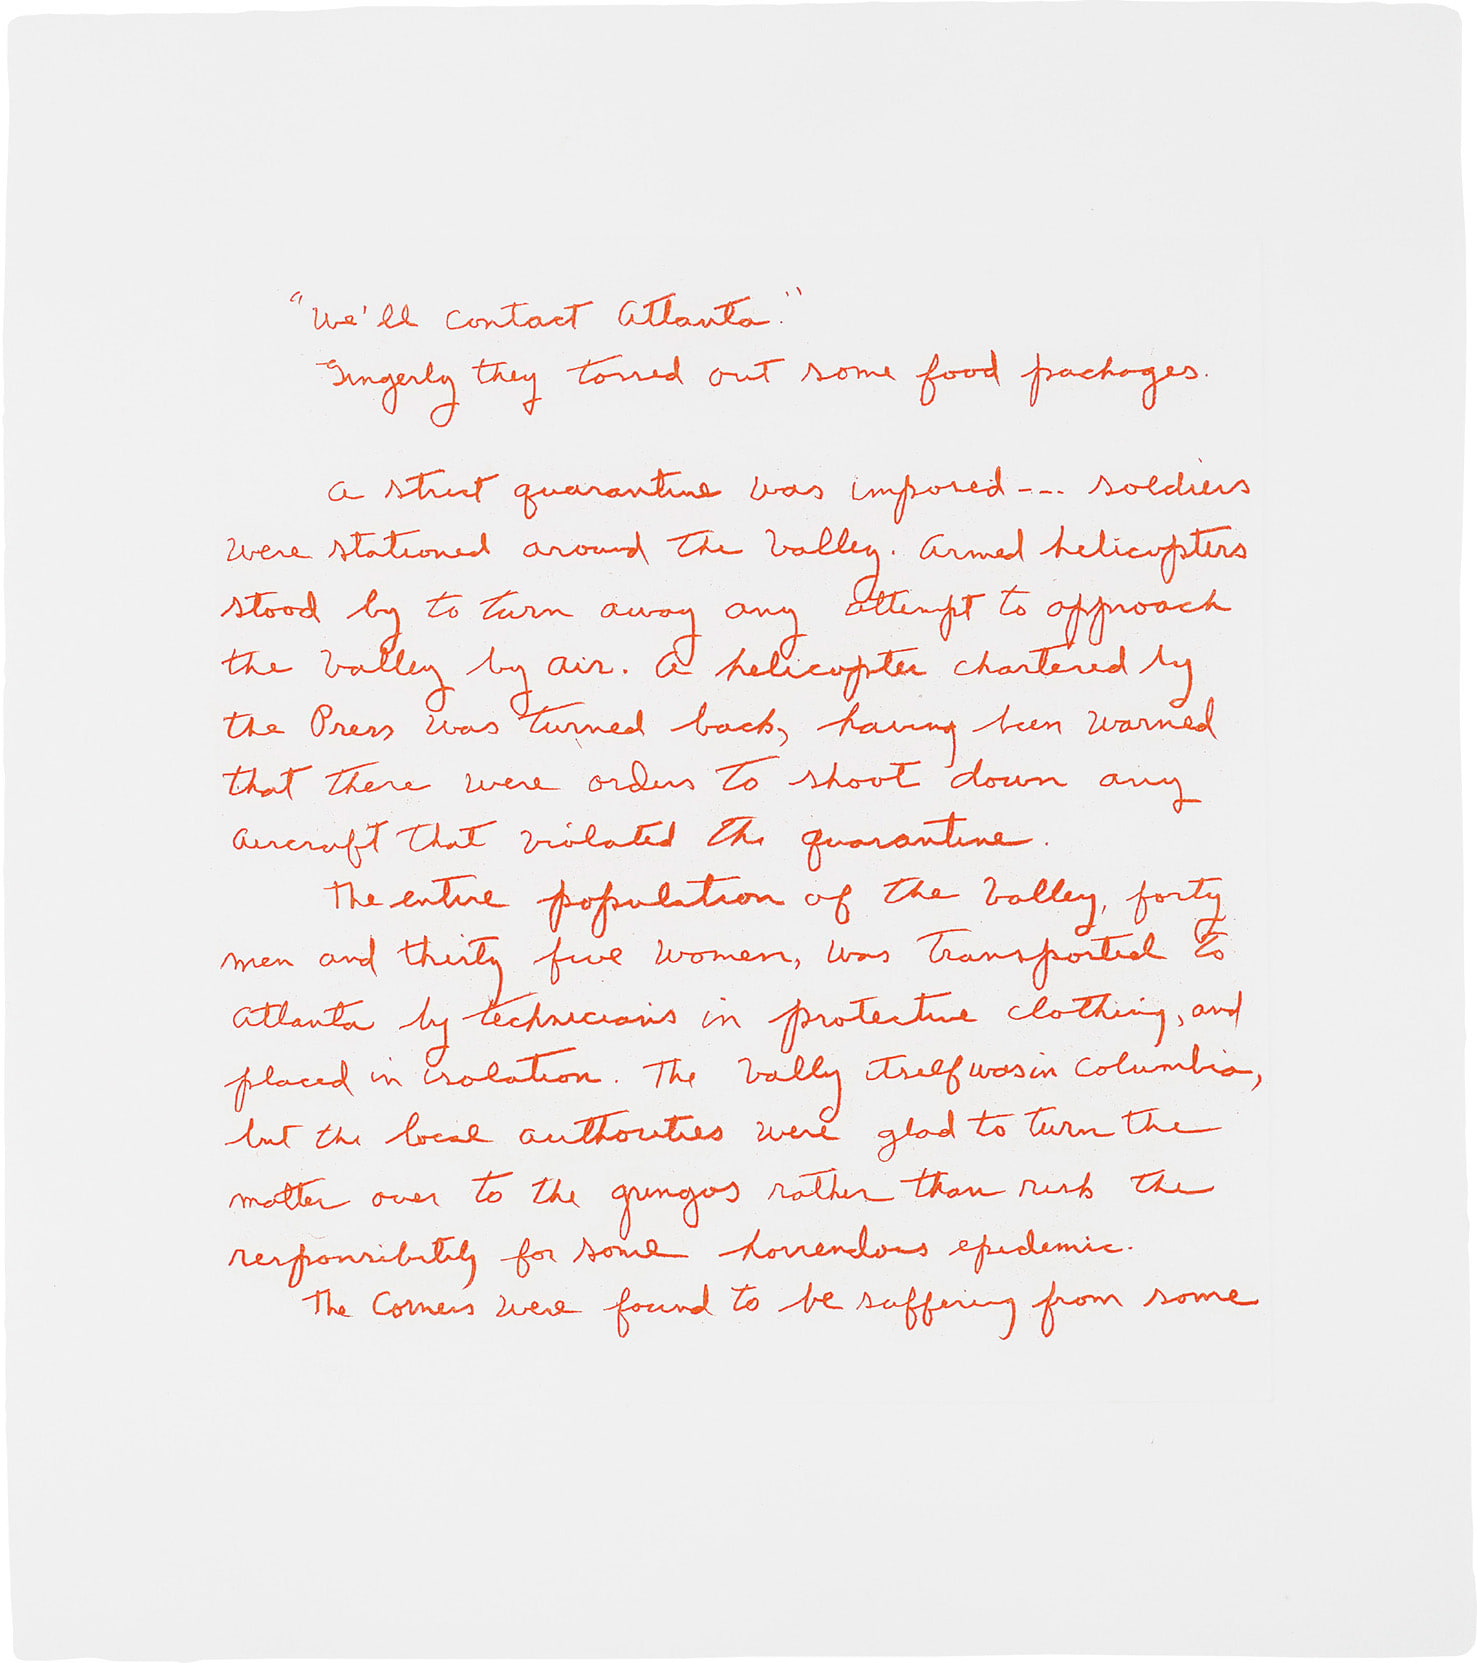 "We'll contact Atlanta."
Gingerly they tossed out some food packages.
A strict quarantine was imposed --- soldiers
were stationed around the Valley. Armed helicopters
stood by to turn away any attempt to approach
the Valley by air. A helicopter chartered by
the Press was turned back, having been warned
that there were orders to shoot down any
aircraft that violated the quarantine.
The entire population of the Valley, forty
men and thirty five women, was transported to
Atlanta by technicians in protective clothing, and
placed in isolation. The Vally itself was in Columbia,
but the local authorities were glad to turn the
matter over to the gringos rather than risk the
responsibility for some horrendous epidemic.
The Comers were found to be suffering from some